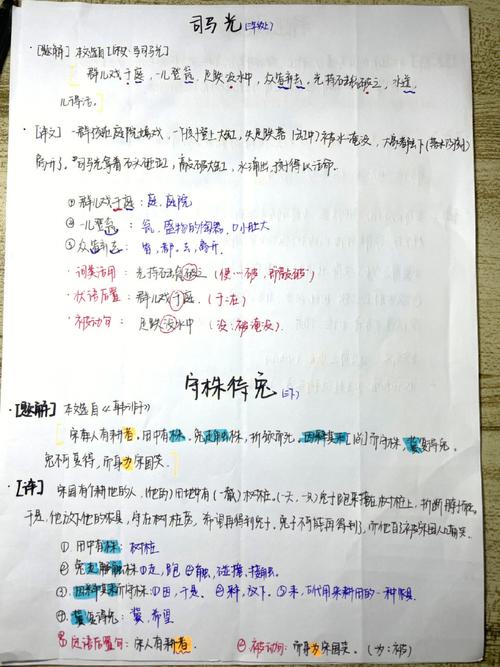 司马光(三年级上)
·[题解] 本文选自[宋史·司马光]
群儿戏于庭,一儿登瓮,足跌没水中,众皆弃去,光持石击瓮破之,水迸,
儿得活。
·[译文] 一群孩在庭院嬉戏,一个孩子登上大缸,失足跌落(缸中)被水淹没,大家都丢下
离开了。司马光拿着石头砸缸,敲破大缸,水涌出,孩子得以活命。
①群儿戏于庭:庭,庭院
②一儿登瓮:瓮,盛物的陶器,口小肚大
③众皆弃去:皆,都。去,离开
·词类活用:光持石击瓮破之(使…破,即敲破)
·状语后置:群儿戏于庭(于:在)
·被动句:足跌没水中(没:被淹没)
守株待兔(三下)
·[题解] 本文选自《韩非子》
宋人有耕者。田中有株,兔走触株,折颈而死。因释其耒而守株,冀复得兔。
兔不可复得,而身为宋国笑。
·[译] 宋国有个耕地的人,他的田地中有(一截)树桩。(一天,一只)兔子跑来撞在树桩上,折断脖子而死。
于是,他放下他的农具,守在树桩旁,希望再得到兔子。兔子不可能再得到了,而他自己被宋国人嘲笑。
①田中有株:树桩
②兔走触株①走,跑 ②触,碰撞,接触。
③因释其耒而守株:①因,于是。②释,放下。③耒,古代用来耕田的一种农具
④冀复得兔:冀,希望
定语后置句:宋人有耕者。 被动句:而身为宋国笑。(为:被)